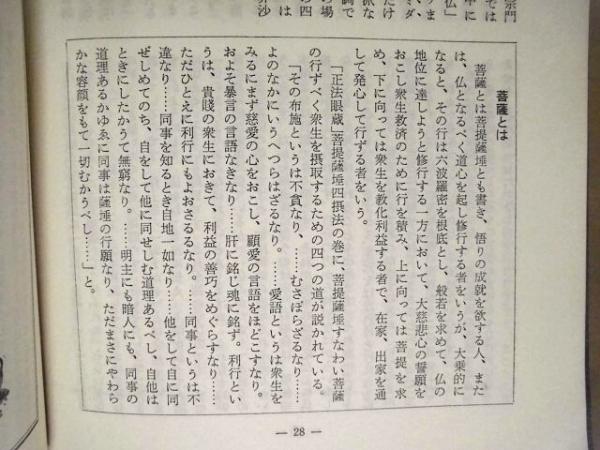 宗門
では
中に
仏」
ッま
ミダ
だけ
派な
調で
の場
の四
は
井沙
菩薩とは
菩薩とは菩提薩埵とも書き、悟りの成就を欲する人、また
は、仏となるべく道心を起し修行する者をいうが、大乗的に
なると、その行は六波羅密を根底とし、般若を求めて、仏の
地位に達しようと修行する一方において、大慈悲心の誓願を
おこし衆生救済のために行を積み、上に向っては菩提を求
め、下に向っては衆生を教化利益する者で、在家、出家を通
して発心して行ずる者をいう。
「正法眼蔵」菩提薩埵四摂法の巻に、菩提薩埵すなわい菩薩
の行ずべく衆生を摂取するための四つの道が説かれている。
「その布施というは不貪なり、……むさぼらざるなり……
よのなかにいうへつらはざるなり。……愛語というは衆生を
みるにまず慈愛の心をおこし、顧愛の言語をほどこすなり。
およそ暴言の言語なきなり……肝に銘じ魂に銘ず。利行とい
うは、貴賤の衆生におきて、利益の善巧をめぐらすなり……
ただひとえに利行にもよおさるるなり。……同事というは不
違なり……同事を知るとき自他一如なり……他をして自に同
ぜしめてのち、自をして他に同せしむ道理あるべし、自他は
ときにしたかうて無窮なり。……明主にも暗人にも、同事の
道理あるかゆゑに同事は薩埵の行願なり、ただまさにやわら
かな容顔をもて一切むかうべし……」と。
— 28 —